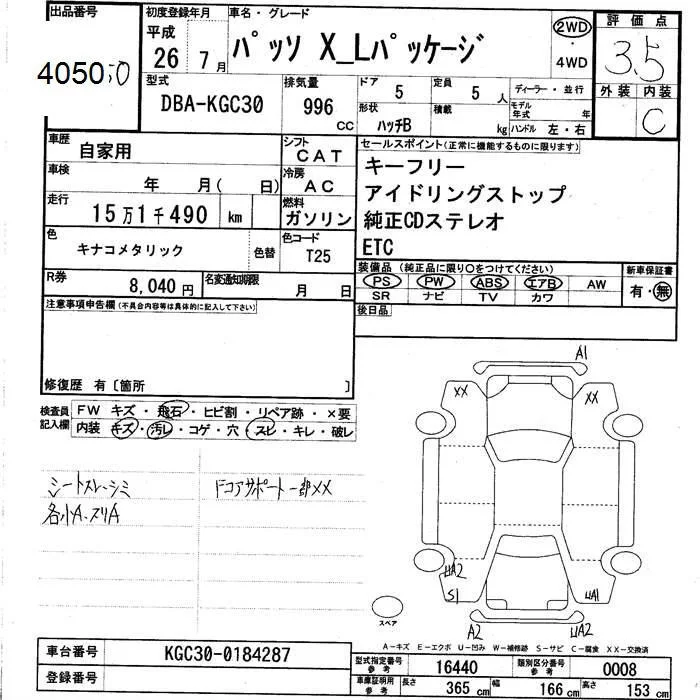 出品番号
40505 0
初度登録年月
平成
26 7月
車名・グレード
パッソ X_Lパッケージ
2WD
・
4WD
評価点
3.5
外装 内装
C
型式
DBA-KGC30
排気量
996
CC
ドア 5
定員 5人
形状
ハッチB
積載
kg
ディーラー・並行
モデル年式 年
ハンドル 左・右
車歴
自家用
シフト
CAT
車検
年 月( 日)
冷房
AC
走行
15万1千490 km
燃料
ガソリン
色
キナコメタリック
色替
色コード
T25
R券
8,040円
名変通知期限
月 日
セールスポイント(正常に機能するものに限ります)
キーフリー
アイドリングストップ
純正CDステレオ
ETC
装備品 (純正品に限り○をつけてください)
PS PW ABS エアB AW
SR ナビ TV カワ
新車保証書
有・無
後日品
注意事項申告欄(不具合内容等は具体的に記入して下さい)
修復歴 有〔箇所 〕
検査員記入欄
FW キズ・飛石・ヒビ割・リペア跡・×要
内装 キズ・汚レ・コゲ・穴・スレ・キレ・破レ
シートスレ・シミ
各小A・スリA
ドコアサポート一部XX
A1
XX
XX
UA2
S1
UA1
A2
UA2
スペア
A-キズ E-エクボ U-凹み W-補修跡 S-サビ C-腐食 XX-交換済
車台番号
KGC30-0184287
登録番号
型式指定番号
参考
16440
類別区分番号
参考
0008
車庫証明用
参考
長さ 365 cm
幅 166 cm
高さ 153 cm